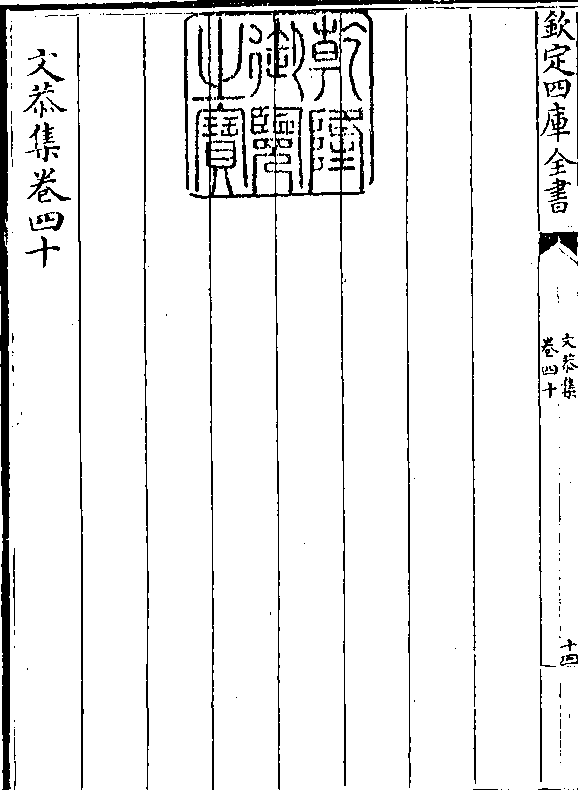 欽定四庫全書
文恭集
卷四十
十四
乾隆御覽之寶
文恭集卷四十